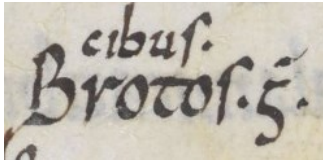 cibus.
Brotos. ḡ.